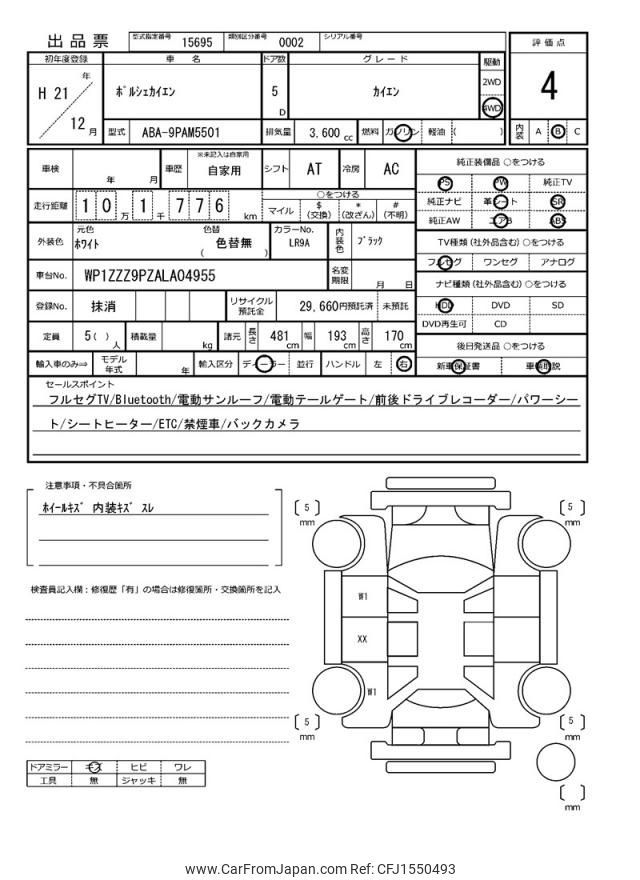 出品票 型式指定番号 15695 類別区分番号 0002 シリアル番号
評価点
4
内装 A B C
初年度登録 車名 ドア数 グレード 駆動
H 21 年 12 月 ポルシェカイエン 5 D カイエン 2WD
4WD
型式 ABA-9PAM5501 排気量 3,600 cc 燃料 ガソリン 軽油 ( )
車検 年 月 車歴 ※未記入は自家用 自家用 シフト AT 冷房 AC
走行距離 1 0 万 1 千 7 7 6 km ○をつける
マイル $(交換) *(改ざん) #(不明)
外装色 元色 ホワイト 色替 ( 色替無 ) カラーNo. LR9A 内装色 ブラック
車台No. WP1ZZZ9PZALA04955 名変期限 月 日
登録No. 抹消 リサイクル預託金 29,660円預託済 未預託
定員 5( )人 積載量 kg 諸元 長さ 481 cm 幅 193 cm 高さ 170 cm
輸入車のみ⇒ モデル年式 年 輸入区分 ディーラー 並行 ハンドル 左 右
純正装備品 ○をつける
PS PW 純正TV
純正ナビ 革シート SR
純正AW エアB ABS
TV種類 (社外品含む) ○をつける
フルセグ ワンセグ アナログ
ナビ種類 (社外品含む) ○をつける
HDD DVD SD
DVD再生可 CD
後日発送品 ○をつける
新車保証書 車輌取説
セールスポイント
フルセグTV/Bluetooth/電動サンルーフ/電動テールゲート/前後ドライブレコーダー/パワーシー
ト/シートヒーター/ETC/禁煙車/バックカメラ
注意事項・不具合箇所
ホイールキズ 内装キズ スレ
検査員記入欄：修復歴「有」の場合は修復箇所・交換箇所を記入
ドアミラー キズ ヒビ ワレ
工具 無 ジャッキ 無
5
mm
5
mm
W1
XX
W1
5
mm
5
mm
mm
www.CarFromJapan.com Ref: CFJ1550493